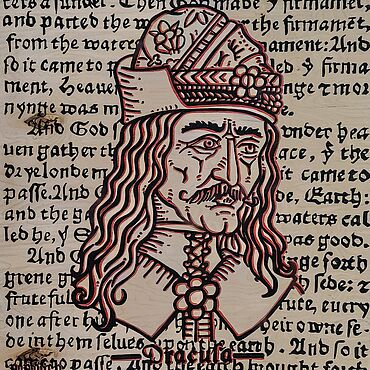 ders asunder. Then God made y firmament,
and parted the w the firmamēt,
from the waters ament: And
so it came to p ed y firma
ment, Heaven nge & mor
nynge was m
And God s under hea
uen gather th ace, y the
drye londe m t came to
passe. And G e, Earth:
and the ga waters cal
led he, y S was good.
And G nge forth
grene g sede: &
frutefull rute, every
one after hi their owne se
de in them selves upon the earth. And so it
came to passe. And the earth
Dracula